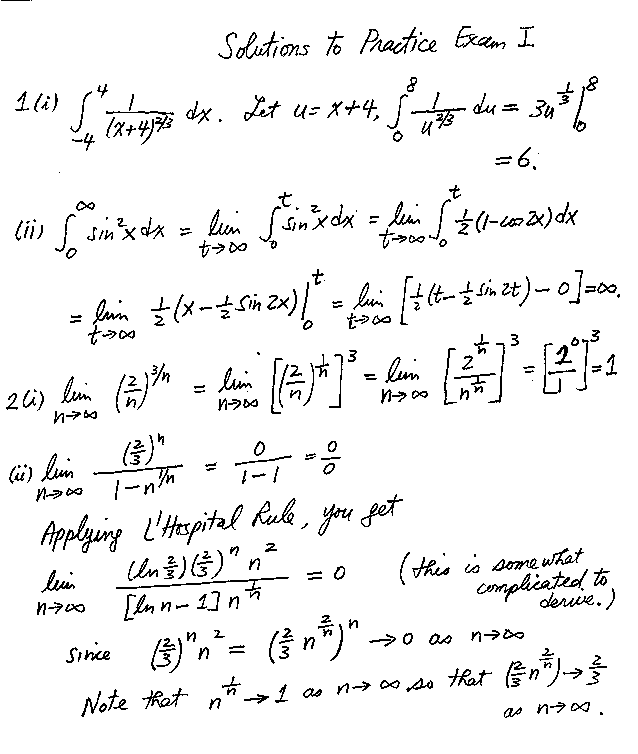 Solutions to Practice Exam I
1(i) ∫_{-4}^{4} 1/(x+4)^{2/3} dx. Let u = x+4, ∫_0^8 1/u^{2/3} du = 3u^{1/3} |_0^8
= 6.
(ii) ∫_0^∞ sin²x dx = lim_{t→∞} ∫_0^t sin²x dx = lim_{t→∞} ∫_0^t 1/2 (1-cos 2x) dx
= lim_{t→∞} 1/2 (x - 1/2 sin 2x) |_0^t = lim_{t→∞} [1/2 (t - 1/2 sin 2t) - 0] = ∞.
2(i) lim_{n→∞} (2/n)^{3/n} = lim_{n→∞} [(2/n)^{1/n}]^3 = lim_{n→∞} [2^{1/n} / n^{1/n}]^3 = [2^0 / 1]^3 = 1
(ii) lim_{n→∞} (2/3)^n / (1 - n^{1/n}) = 0/(1-1) = 0/0
Applying L'Hospital Rule, you get
lim_{n→∞} (ln 2/3)(2/3)^n n² / ([ln n - 1] n^{1/n}) = 0 (this is somewhat
complicated to
derive.)
since (2/3)^n n² = (2/3 n^{2/n})^n → 0 as n→∞
Note that n^{1/n} → 1 as n→∞, so that (2/3 n^{2/n}) → 2/3
as n→∞.